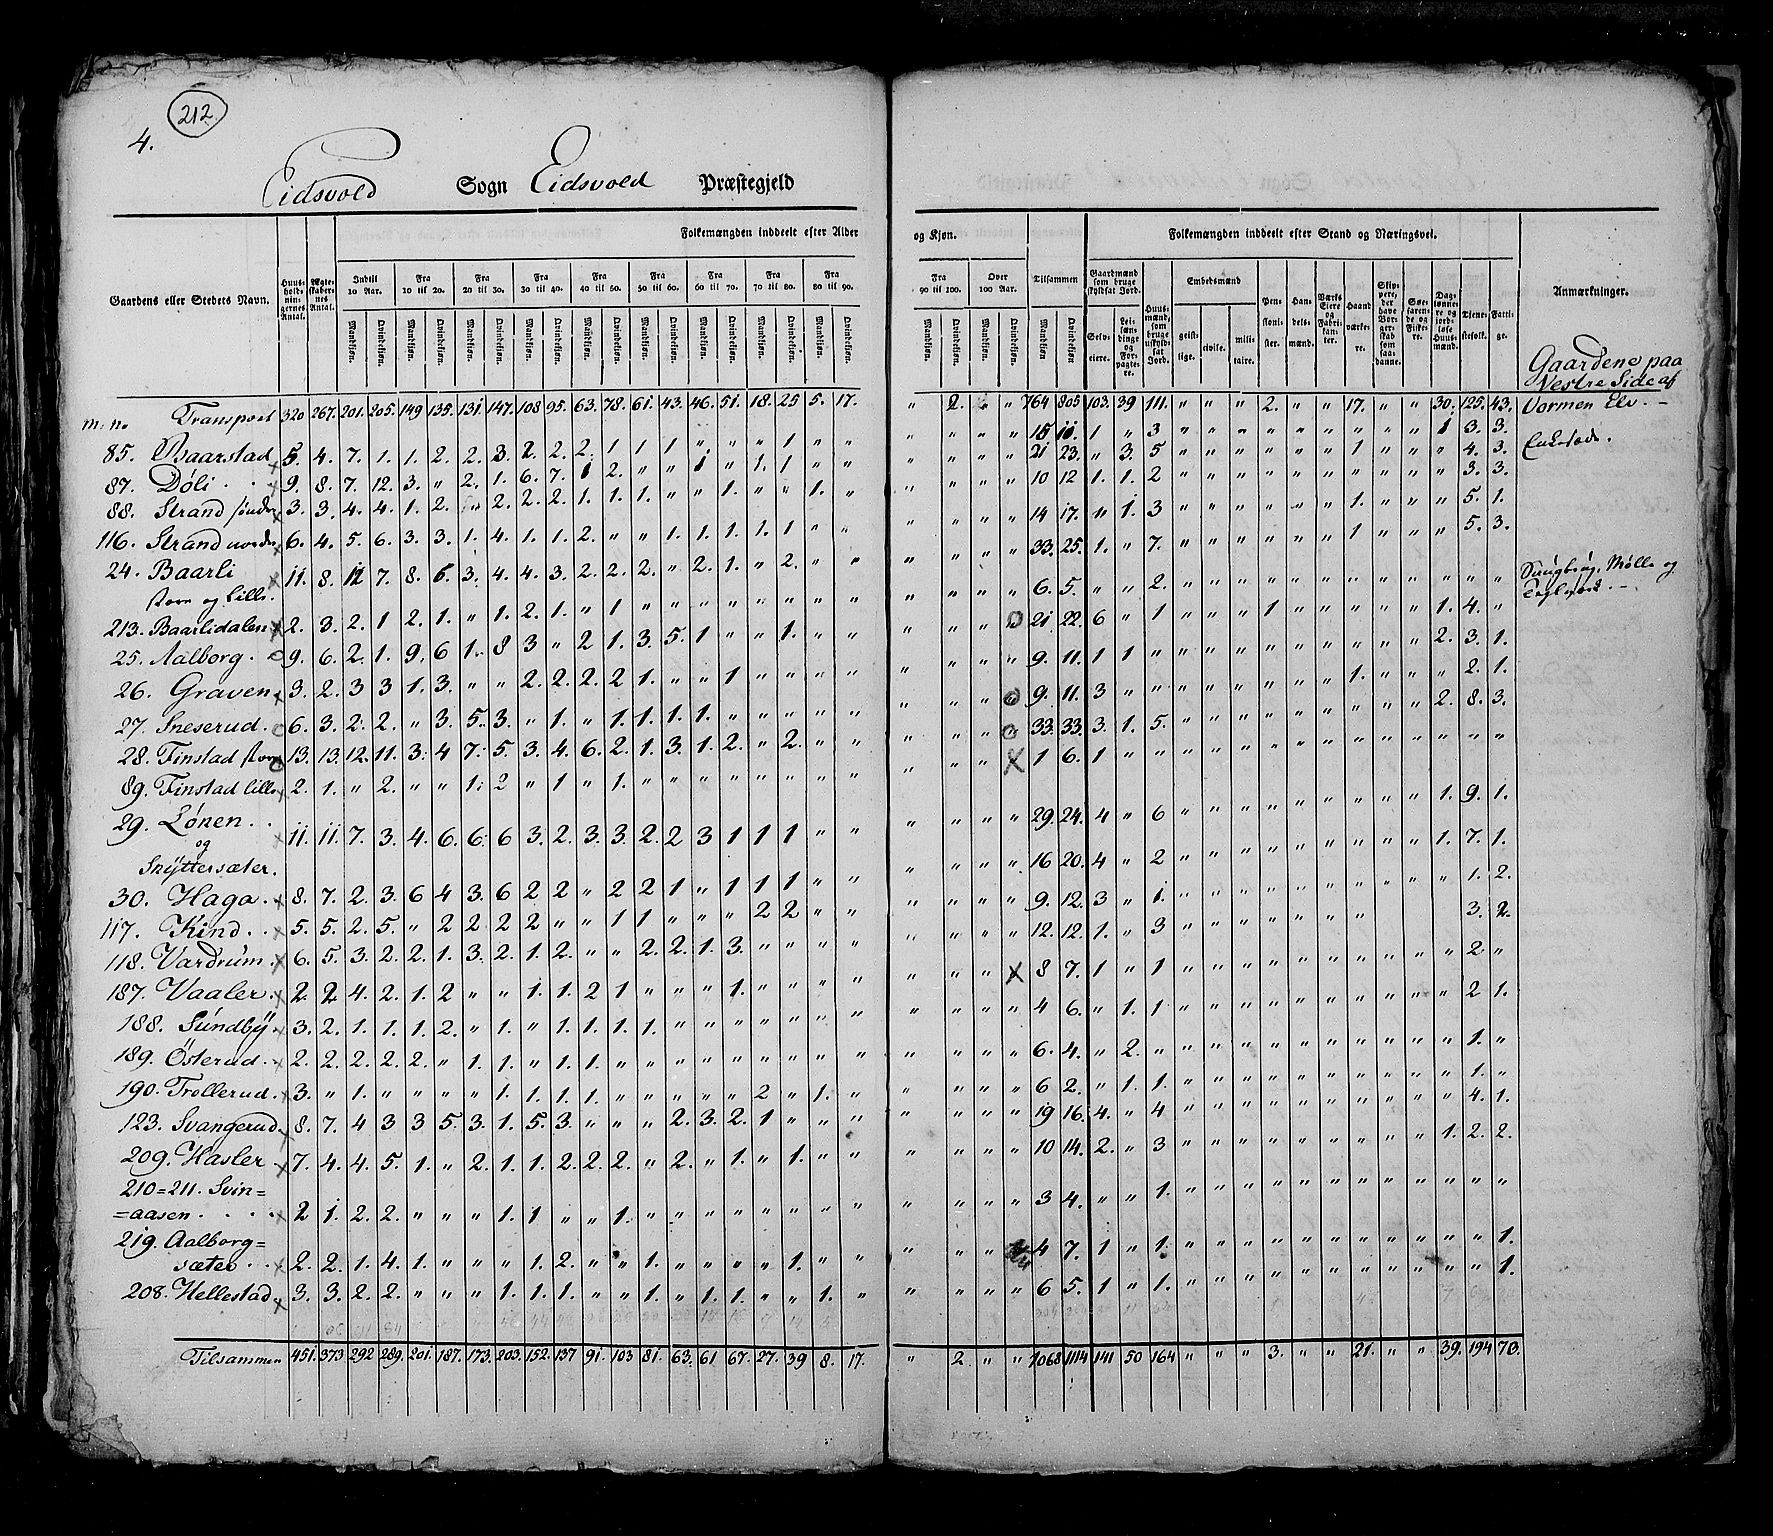 212.
4.
Eidsvold Sogn Eidsvold Præstegjeld
Gaardens eller Stedets Navn.
Huus-holdnin-gernes Antal.
Ægte-skaber-nes Antal.
Folkemængden inddeelt efter Alder og Kjøn.
Indtil 10 Aar.
Fra 10 til 20.
Fra 20 til 30.
Fra 30 til 40.
Fra 40 til 50.
Fra 50 til 60.
Fra 60 til 70.
Fra 70 til 80.
Fra 80 til 90.
Fra 90 til 100.
Over 100 Aar.
Tilsammen
Mandkjøn. Qvindekjøn.
Folkemængden inddeelt efter Stand og Næringsvei.
Gaardmænd som bruge skyldsat Jord.
Selv-eiere.
Lei-lændinge og For-pagte-re.
Huus-mænd, som bruge uskyld-sat Jord.
Embedsmænd
geist-lige. civile. mili-taire.
Pen-sioni-ster.
Han-dels-mænd.
Værks Eiere og Fabri-kan-ter.
Haand værke-re.
Skip-pere, der have Bor-ger-skab som saa-danne.
Søe-farende og Fiske-re.
Dag-lønne-re og jord-løse Huus-mænd.
Tjene-stefolk.
Fatti-ge.
Anmærkninger.
Gaardene paa
Vestre Side af
Vormen Elv.
m: no Transport 320 267. 201. 205. 149 135. 131. 147. 108 95. 63. 78. 61. 43. 46. 51. 18. 25 5. 17. " 2. " " 764 805 103. 39 111. " " " 2. " " 17. " " 30. 125. 43.
85. Baarstad 5. 4. 7. 1. 1. 2. 2. 3. 2. 2. 2. 1 1 1 " " " 1 " " " " " " 15 11. 1 " 3 " " " " " " " " " 1 3. 3.
87. Döli 9. 8. 7. 12. 3. " 2. 1. 6. 7. 1 2. " " 1 " 1. 1 " " " " " " 21 23. " 3. 5 " " " " " " 1 " " " 4. 3.
88. Strand söndr 3. 3. 4. 4. 1. 2. " 2. 2. 2. 1. 1. 1. " " 1. " " 1. " " " " " 10 12 1. 1. 2 " " " " " " " " " " 3. 3.
116. Strand nordr 6. 4. 5. 6. 3. 3. 1. 4. 1. 1. 2. " " 1. 1. 1. 1. 1 " " " " " " 14 17. " 1. 3 " " " " " " 1. " " " 5. 1.
24. Baarli 11. 8. 12 7. 8. 6. 3. 4. 4. 3. 2. 2. 2. " 2. 1. " 2. " " " " " " 33. 25. 1. " 7. " " " " " " 1 " " " 5. 3.
store og lille.
213. Baarlidalen 2. 3. 2. 1 2. 1. " 1. 2. 1. " 1 " " " " " " " " " " " " 6. 5. " " 2. " " " " " " " " " " " "
25. Aalborg 9. 6. 2. 1. 9. 6 1. 8 3 " 2 1. 3. 5. 1 " " 1. " " " " " 21 22. 6 " 1 " " " 1 " " " " " 1. 4. "
26. Graven 3. 2. 3 3 1. 3. " " 2. 2. 2. 2 1. " " 1 " " " " " " " " 9. 11. 1 1 " " " " " " " " " " 2. 3. 1.
27. Sneserud 6. 3. 2. 2. " 3. 5. 3. " 1. " 1. 1. 1. 1. " " " " " " " " 9. 11. 3 " " " " " " " " 1. " " " 2. 1.
28. Finstad store 13. 13. 12. 11. 3. 4 7. 5. 3. 4. 6. 2. 1. 3. 1. 2. " 2. " " " " " 33. 33. 3. 1. 5. " " " " " " " " " 2. 8. 3.
89. Finstad lille 2. 1. " 2. " " 1. 2 " 1 " 1. " " " " " " " " " " " 1 6. 1 " " " " " " " " " " " " " "
29. Lönen 11. 11. 7. 3. 4. 6. 6. 6 3. 2. 3. 3. 2. 2 3 1 1 1 " " " " " " 29. 24. 4 " 6 " " " " " " " " " 1. 9. 1.
og
Snÿttersæter.
30. Haga 8. 7. 2. 3. 6 4 3. 6 2 2 " 2 2 1 " 1 1 1 " " " " " " 16 20. 4 " 2 " " " " " " " " " 1. 7. 1.
117. Kind 5. 5. 2. 5. " 2 2 2 2 " " 1 1 " " " 2 2 " " " " " " 9. 12. 3 " 1. " " " " " " " " " " 1. 2.
118. Vardrum 6. 5. 3. 2. 2. 1. 3. 2. 1. 2. " " 2. 2. 1. 3. " " " " " " " " 12. 12. 1. " 3 " " " " " " " 3. 2.
187. Vaaler 2. 2 4. 2. 1. 2 " " 1. 1. 2 1 " " " 1. " " " " " " " 8 7. 1 " 1 " " " " " " " " " " 2. "
188. Sundbÿ 3. 2. 1. 1. 1. 2. " 1. " 1. 1. 1. 1. " " " " " " " " " " " 4 6. " 1. 1. " " " " " " " " " " 2 1.
189. Österud 2. 2. 2. 2. 2. " 1. 1. " 1. 1. " " " " " " " " " " " " " 6. 4. " 2. " " " " " " " " " " " 1. "
190. Trollerud 3. " 1. " " " " 1. 1. 1. 1. " " " " " 2 " 1. " " " " " 6 2. " 1. 1. " " " " " " " " " " 1. "
123. Svangerud 8. 7. 4 3 3 5. 3. 1. 5. 3. " " " 2. 3. 2. 1 " " " " " " " 19 16. 4. " 4 " " " " " " " " " " 4. 1.
209. Hasler 7. 4. 4. 5. 1. " 2. 1. 1. 2. 2. 2. " 2. " 1. " 1. " " " " " " 10 14. 2. " 3 " " " " " " " " " 1. 2. 2.
210=211. Svin=
=aasen 2 1. 2. 2. " " " 1. 1 " " 1. " " " " " " " " " " " " 3 4. " " 1. " " " " " " " " " " " "
219. Aalborg=
sæter 2. 2. 1. 4. 1. " " " 1. 2. " " 1. " " " " 1. " " " " 4 7. 1 " 1. " " " " " " " " " " " 1.
208. Hellestad 3. 3. 2. 2. " " " 1. 1. 1. " " 1. " 1. 1. " " 1. " " " " " 6 5. 1 " 1. " " " " " " " " " " " 1.
Tilsammen 451. 373 292 289. 201. 187. 173. 203. 152. 137 91. 103 81. 63. 61 67. 27. 39 8. 17. " 2. " " 1068 1114 141 50 164 " " " 3. " " 21. " " 39. 194 70.